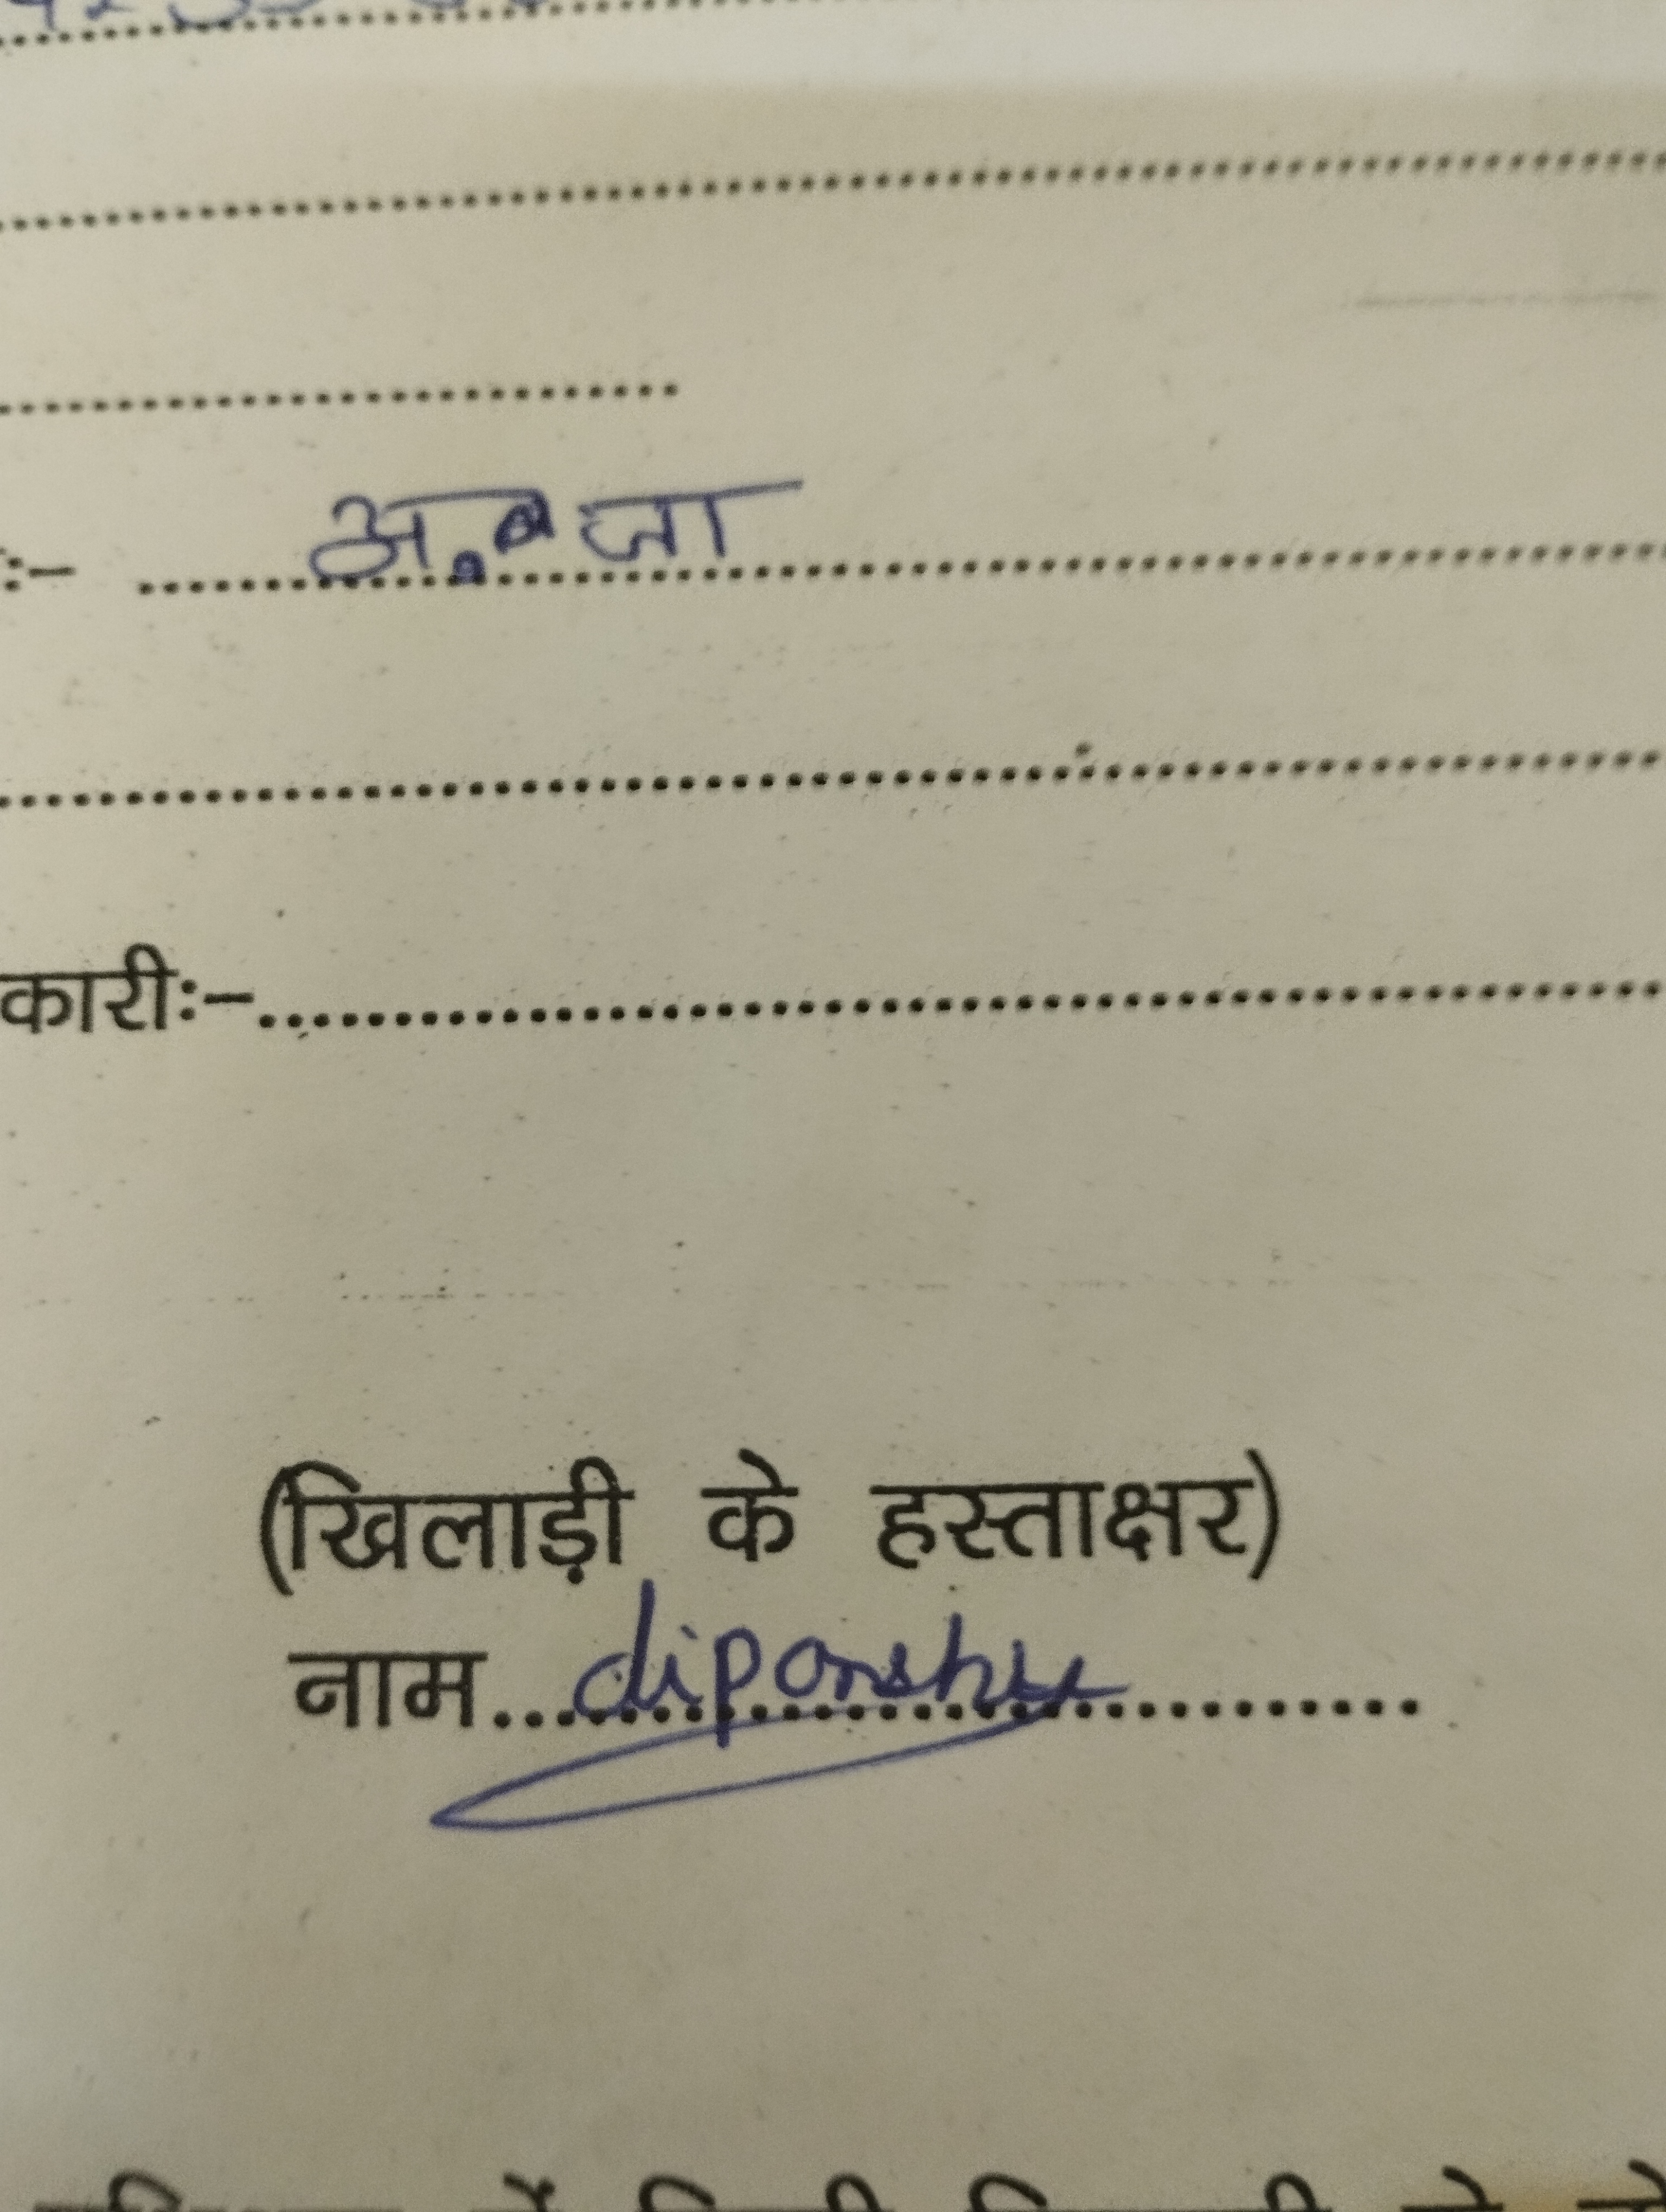 :-
अ. जा
कारीः-
(खिलाड़ी के हस्ताक्षर)
नाम...diponshu